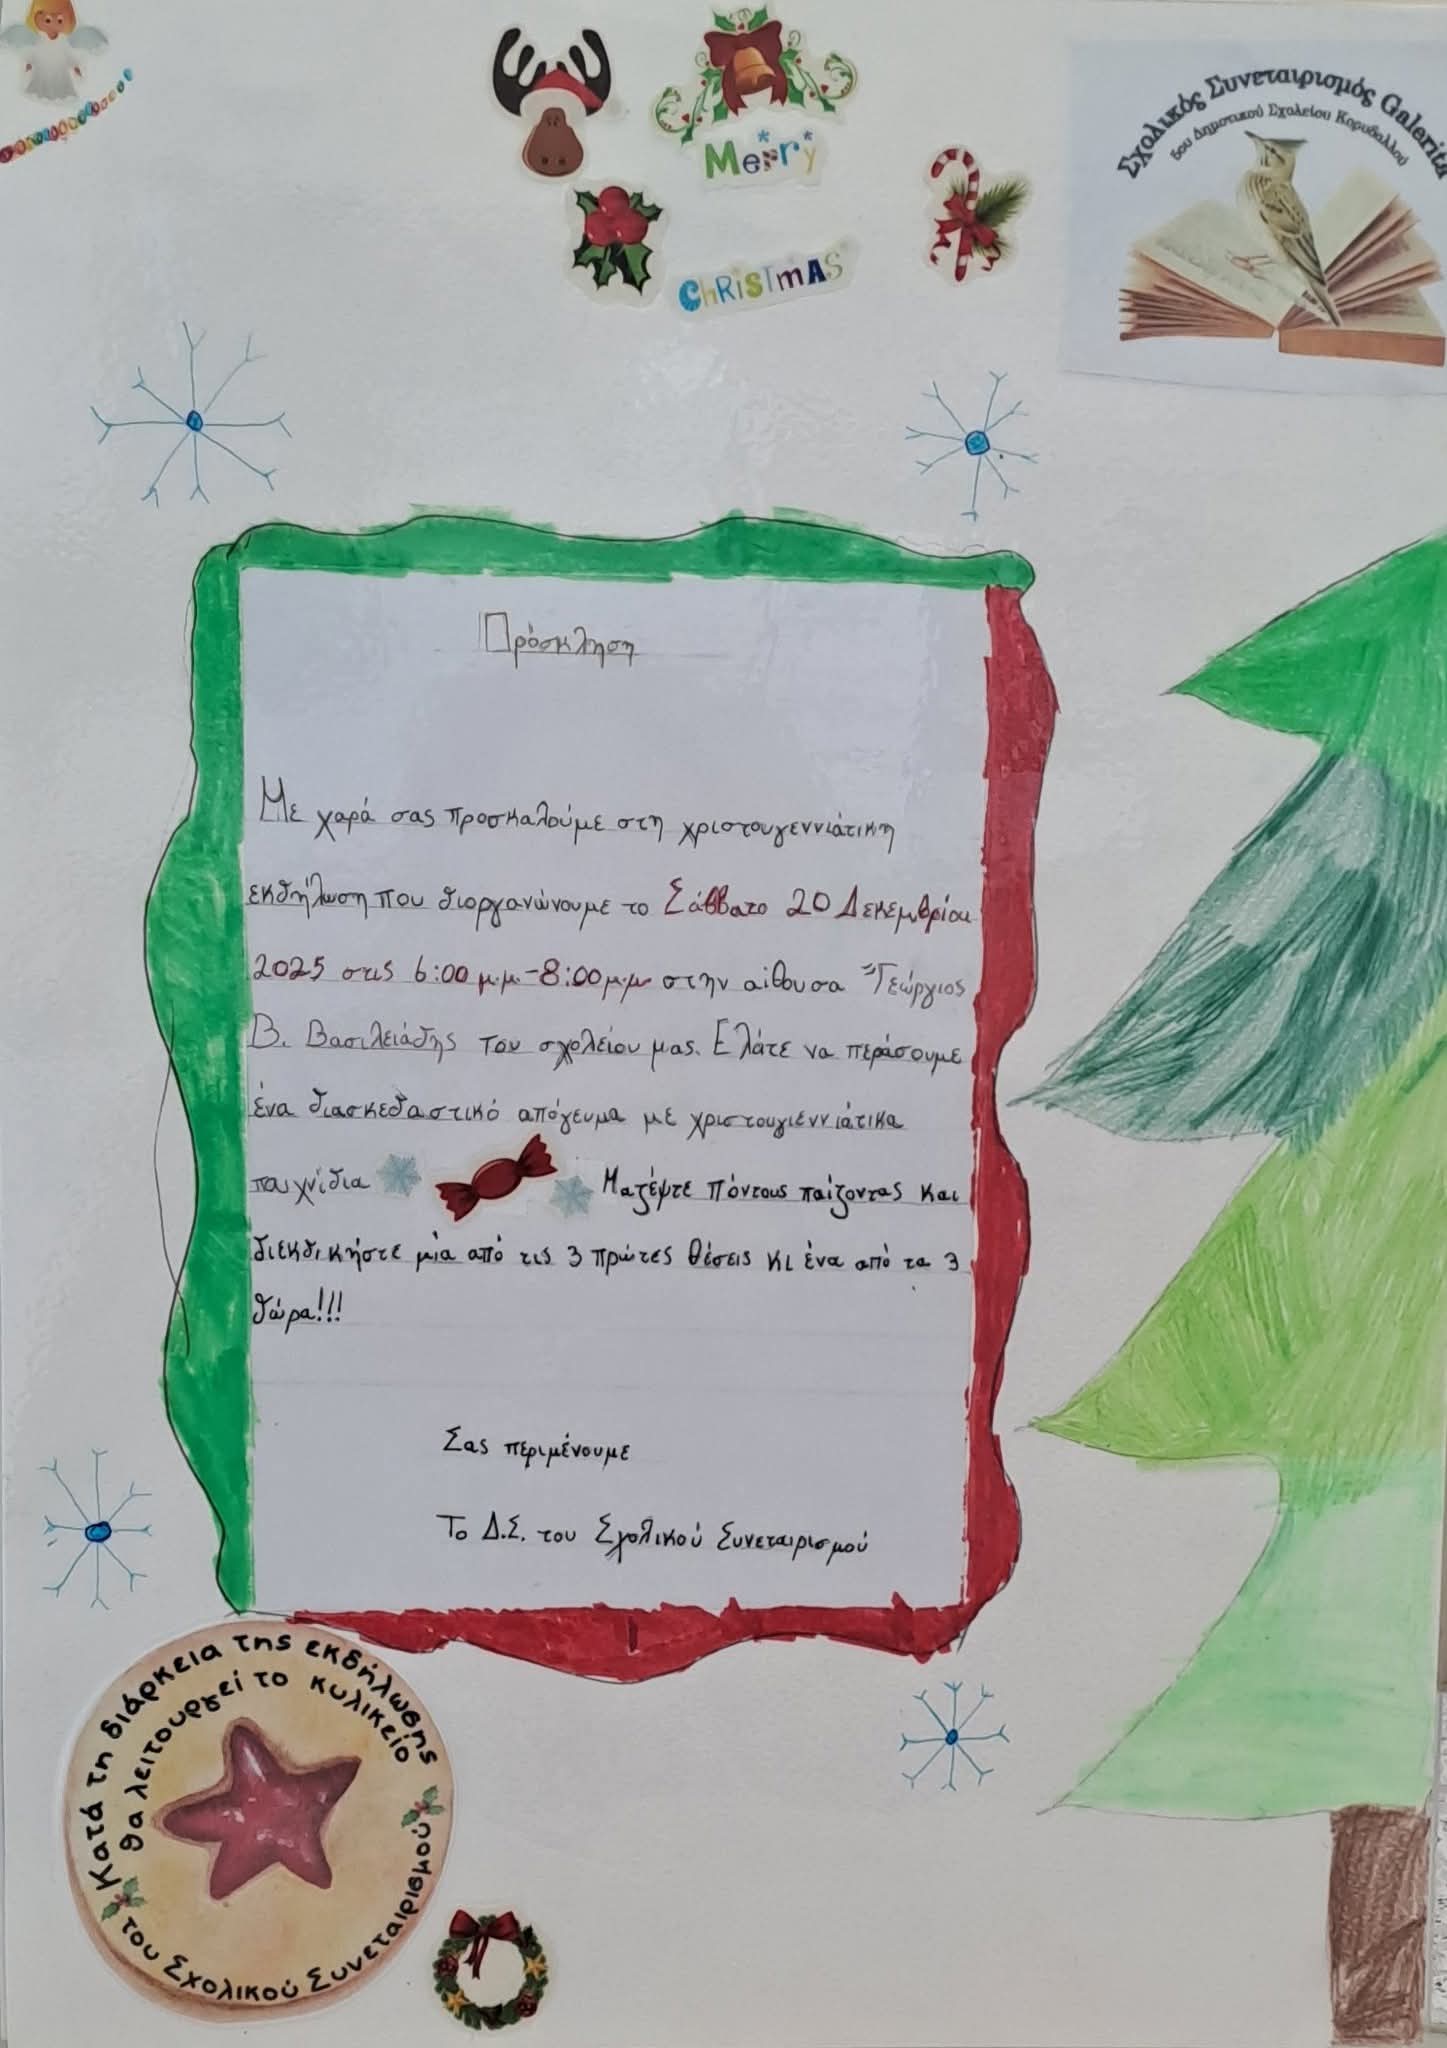 Merry
CHRISTMAS
Σχολικός Συνεταιρισμός Galerita
5ου Δημοτικού Σχολείου Κορυδαλλού
Πρόσκληση
Με χαρά σας προσκαλούμε στη χριστουγεννιάτικη
εκδήλωση που διοργανώνουμε το Σάββατο 20 Δεκεμβρίου
2025 στις 6:00 μ.μ.-8:00μ.μ στην αίθουσα "Γεώργιος
Β. Βασιλειάδης του σχολείου μας. Ελάτε να περάσουμε
ένα διασκεδαστικό απόγευμα με χριστουγιεννιάτικα
παιχνίδια Μαζέψτε πόντους παίζοντας και
διεκδικήστε μία από τις 3 πρώτες θέσεις κι ένα από τα 3
δώρα!!!
Σας περιμένουμε
Το Δ.Σ. του Σχολικού Συνεταιρισμού
Κατά τη διάρκεια της εκδήλωσης
θα λειτουργεί το κυλικείο
του Σχολικού Συνεταιρισμού